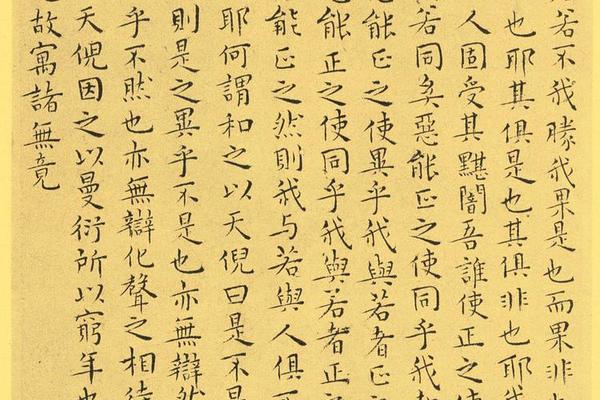 若不我勝我果是也而果非也
也耶其俱是也其俱非也耶我
人固受其黮闇吾誰使正之
若同矣惡能正之使同乎我
能正之使異乎我與若者正之
能正之使同乎我與若者正
能正之然則我与若與人俱不
耶何謂和之以天倪曰是不是
則是之異乎不是也亦無辯然
乎不然也亦無辯化聲之相待
天倪因之以曼衍所以窮年也
故寓諸無竟